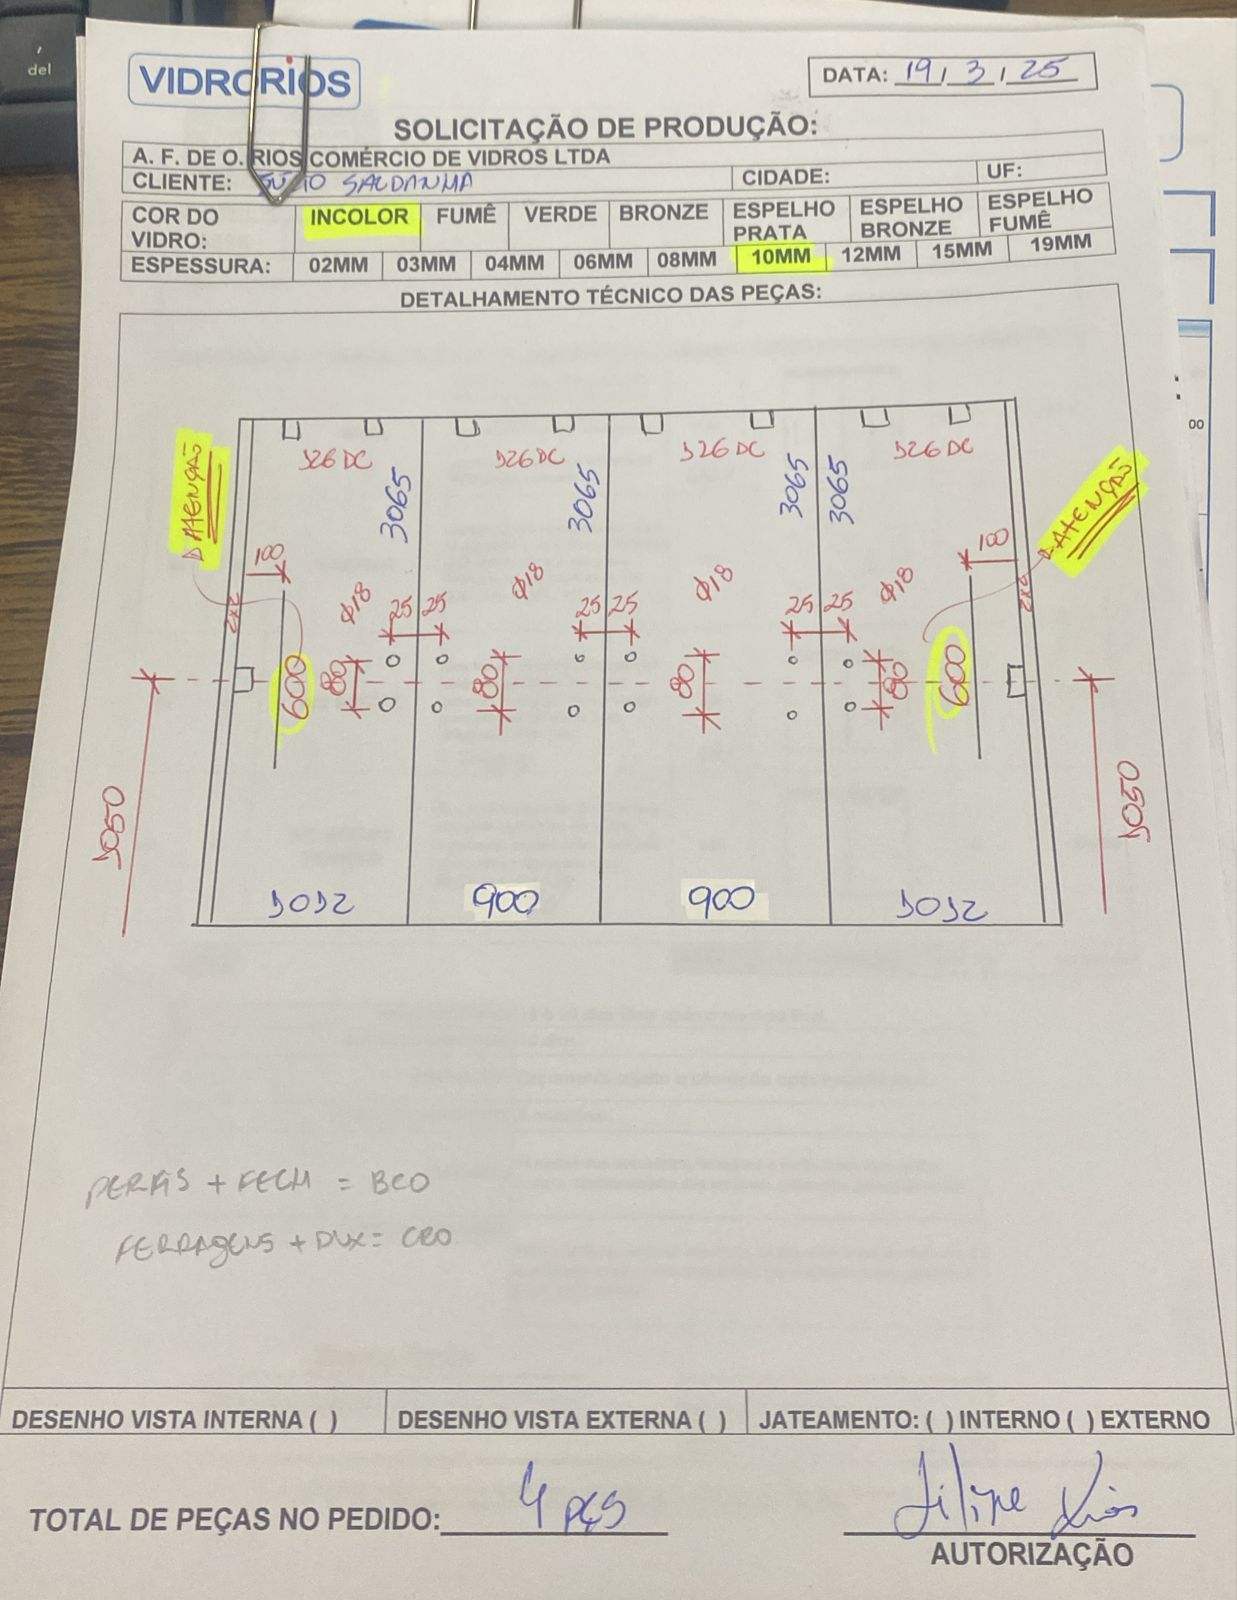 del
VIDRORIOS
DATA: 19/3/25
SOLICITAÇÃO DE PRODUÇÃO:
A. F. DE O. RIOS COMÉRCIO DE VIDROS LTDA
CLIENTE: SALDANHA CIDADE: UF:
COR DO VIDRO: INCOLOR FUMÊ VERDE BRONZE ESPELHO PRATA ESPELHO BRONZE ESPELHO FUMÊ
ESPESSURA: 02MM 03MM 04MM 06MM 08MM 10MM 12MM 15MM 19MM
DETALHAMENTO TÉCNICO DAS PEÇAS:
126 DC 126 DC 126 DC 126 DC
ATENÇÃO 3065 3065 3065 3065 ATENÇÃO
100 100
Φ18 Φ18 Φ18 Φ18
25 25 25 25 25 25
600 80 80 80 80 600
1050 1050
1012 900 900 1012
PERFIS + FECH = BCO
FERRAGENS + DUX = CRO
DESENHO VISTA INTERNA ( ) DESENHO VISTA EXTERNA ( ) JATEAMENTO: ( ) INTERNO ( ) EXTERNO
TOTAL DE PEÇAS NO PEDIDO: 4 PÇS Filipe Rios
AUTORIZAÇÃO
00